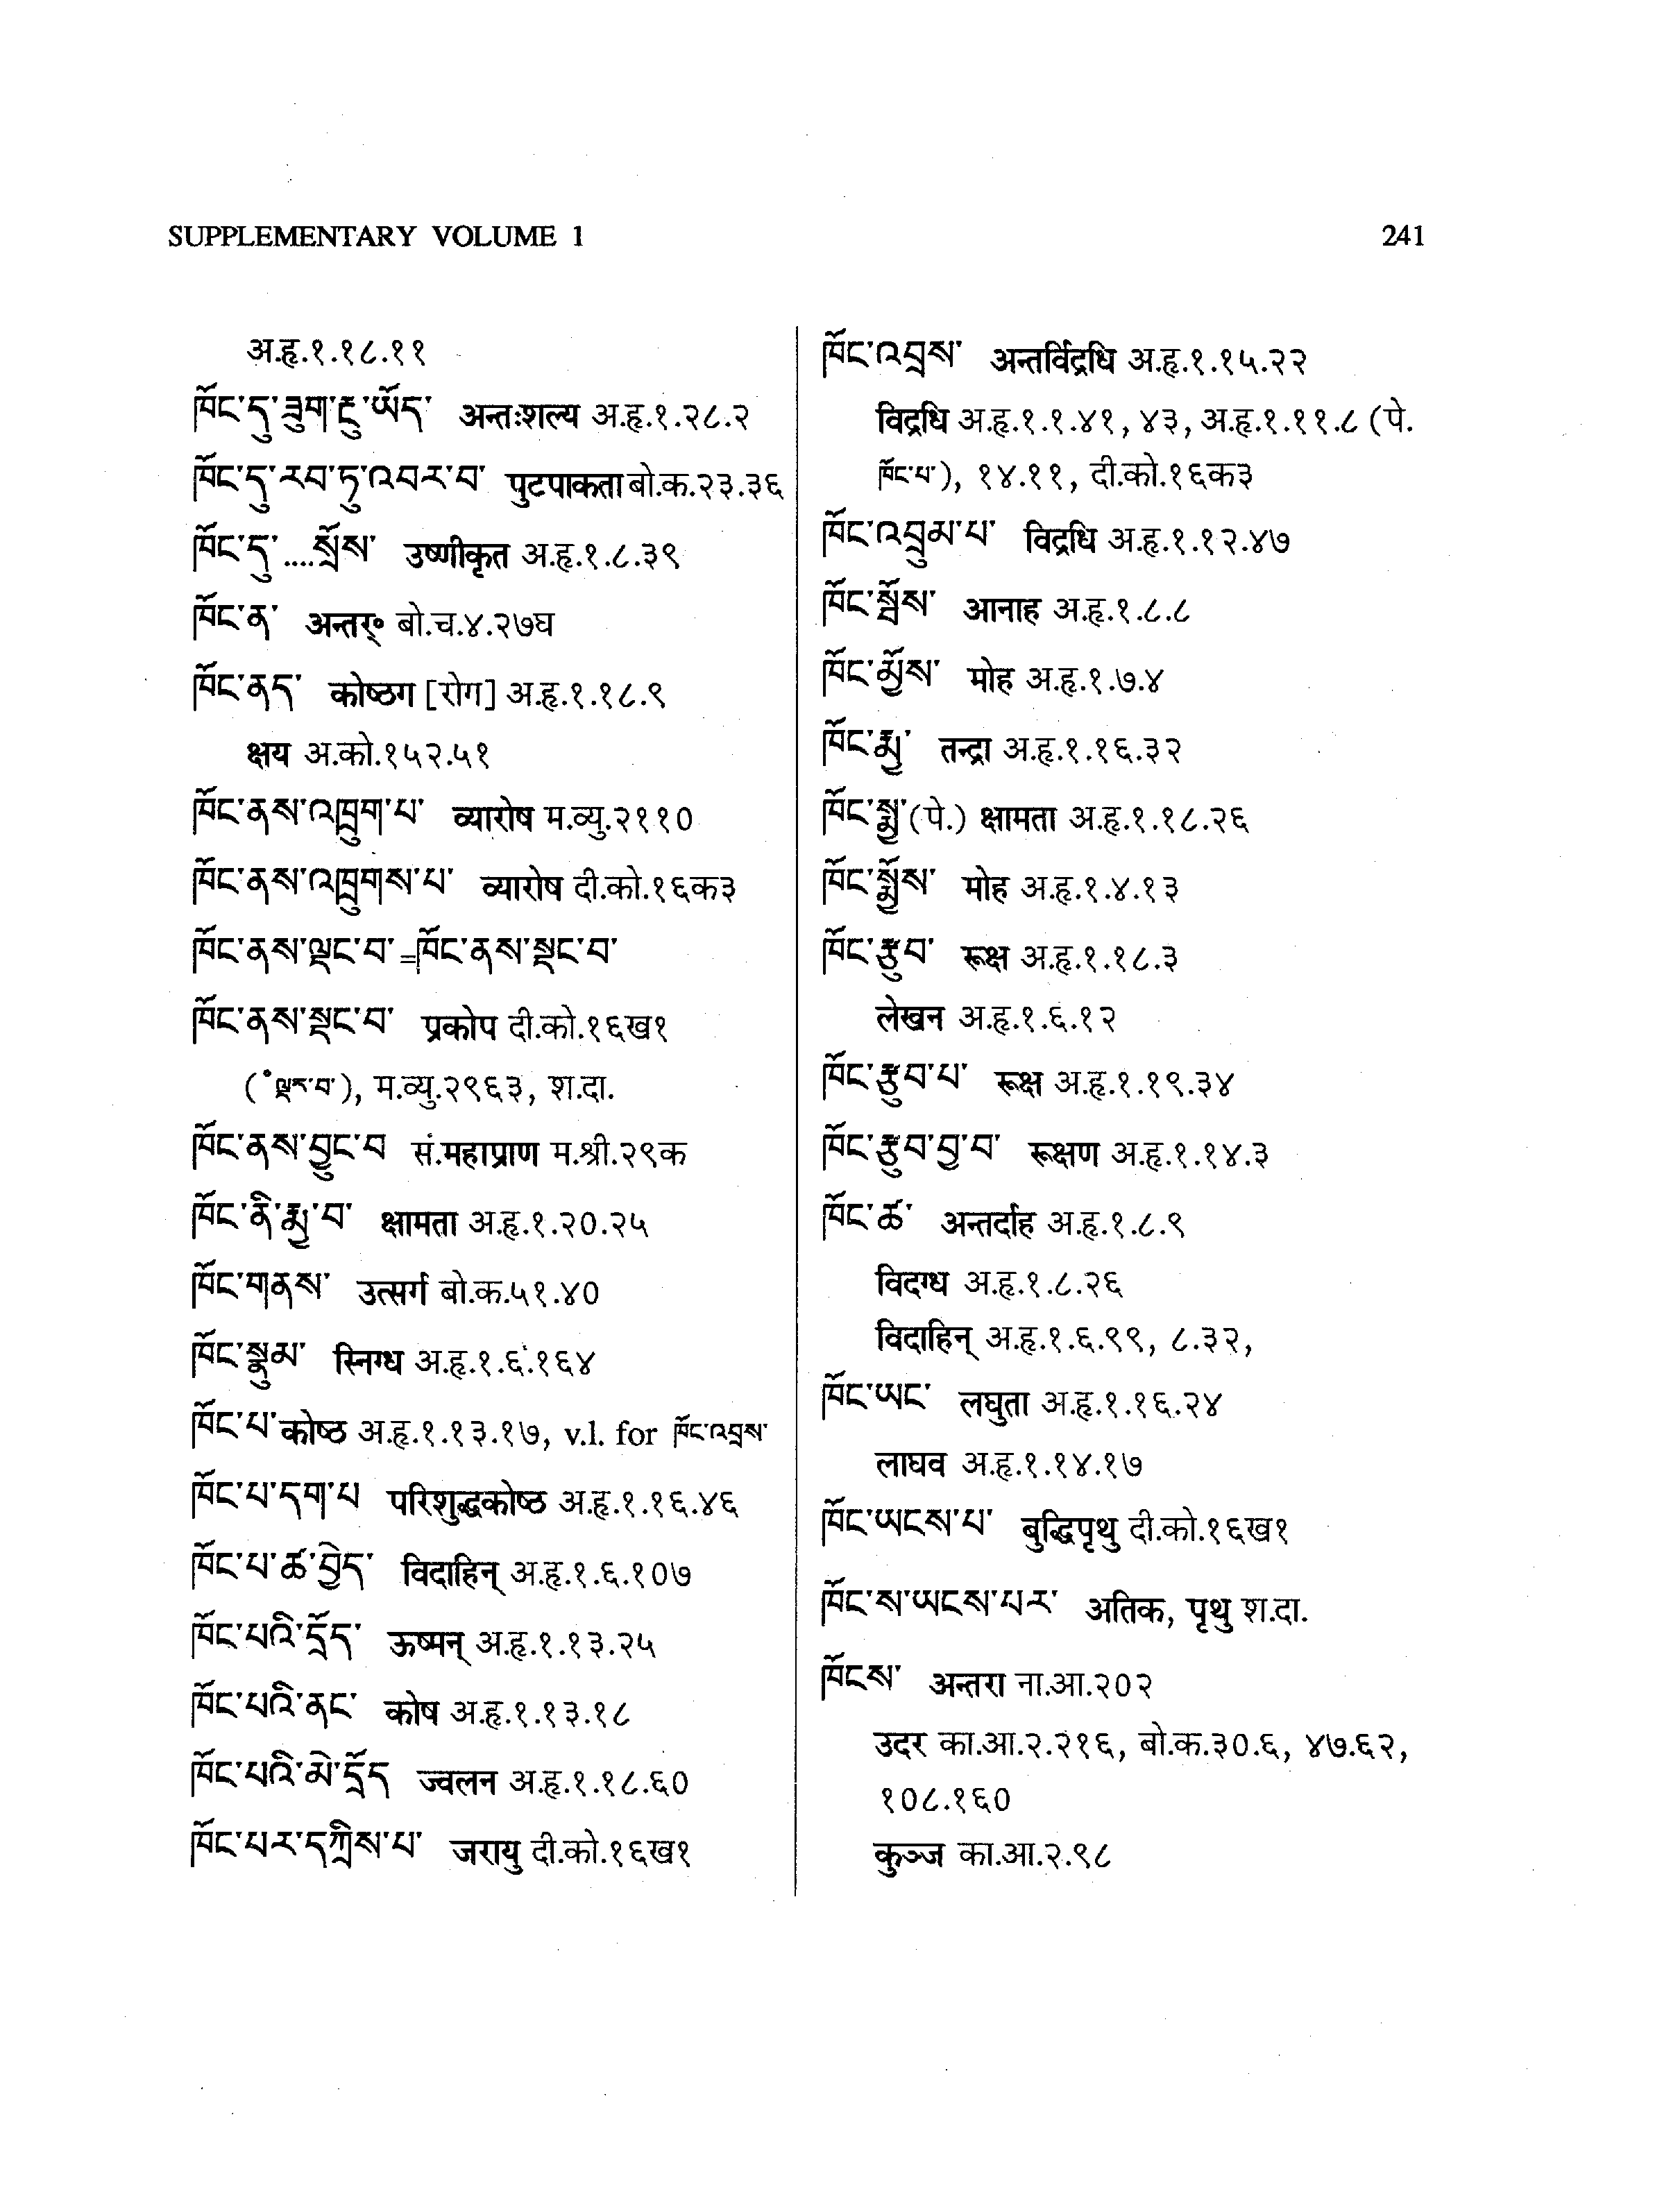 SUPPLEMENTARY VOLUME 1
241
अ.हृ.१.१८.११
ཁོང་དུ་ཟུག་རྔུ་ཡོད་ अन्तःशल्य अ.हृ.१.२८.२
ཁོང་དུ་རབ་ཏུ་འབར་བ་ पुटपाकता बो.क.२३.३६
ཁོང་དུ་....སྲོས་ उष्णीकृत अ.हृ.१.८.३९
ཁོང་ན་ अन्तर्॰ बो.च.४.२७घ
ཁོང་ནད་ कोष्ठग [रोग] अ.हृ.१.१८.९
क्षय अ.को.१५२.५१
ཁོང་ནས་འཁྲུག་པ་ व्यारोष म.व्यु.२११०
ཁོང་ནས་འཁྲུགས་པ་ व्यारोष दी.को.१६क३
ཁོང་ནས་ལྡང་བ་ =ཁོང་ནས་སྡང་བ་
ཁོང་ནས་སྡང་བ་ प्रकोप दी.को.१६ख१
(॰ལྡང་བ་), म.व्यु.२९६३, श.दा.
ཁོང་ནས་བྱུང་བ सं.महाप्राण म.श्री.२९क
ཁོང་ནི་རྨྱ་བ་ क्षामता अ.हृ.१.२०.२५
ཁོང་གནས་ उत्सर्ग बो.क.५१.४०
ཁོང་སྣུམ་ स्निग्ध अ.हृ.१.६.१६४
ཁོང་པ་ कोष्ठ अ.हृ.१.१३.१७, v.l. for ཁོང་འབྲས་
ཁོང་པ་དག་པ परिशुद्धकोष्ठ अ.हृ.१.१६.४६
ཁོང་པ་ཚ་བྱེད་ विदाहिन् अ.हृ.१.६.१०७
ཁོང་པའི་དྲོད་ ऊष्मन् अ.हृ.१.१३.२५
ཁོང་པའི་ནང་ कोष अ.हृ.१.१३.१८
ཁོང་པའི་མེ་དྲོད ज्वलन अ.हृ.१.१८.६०
ཁོང་པར་དཀྲིས་པ་ जरायु दी.को.१६ख१
ཁོང་འབྲས་ अन्तर्विद्रधि अ.हृ.१.१५.२२
विद्रधि अ.हृ.१.१.४१, ४३, अ.हृ.१.११.८ (पे.
ཁོང་པ་), १४.११, दी.को.१६क३
ཁོང་འབྲུམ་པ་ विद्रधि अ.हृ.१.१२.४७
ཁོང་སྦོས་ आनाह अ.हृ.१.८.८
ཁོང་མྱོས་ मोह अ.हृ.१.७.४
ཁོང་རྨྱ་ तन्द्रा अ.हृ.१.१६.३२
ཁོང་སྨྱ་(पे.) क्षामता अ.हृ.१.१८.२६
ཁོང་སྨྱོས་ मोह अ.हृ.१.४.१३
ཁོང་རྩུབ་ रूक्ष अ.हृ.१.१८.३
लेखन अ.हृ.१.६.१२
ཁོང་རྩུབ་པ་ रूक्ष अ.हृ.१.१९.३४
ཁོང་རྩུབ་བྱ་བ་ रूक्षण अ.हृ.१.१४.३
ཁོང་ཚ་ अन्तर्दाह अ.हृ.१.८.९
विदग्ध अ.हृ.१.८.२६
विदाहिन् अ.हृ.१.६.९९, ८.३२,
ཁོང་ཡང་ लघुता अ.हृ.१.१६.२४
लाघव अ.हृ.१.१४.१७
ཁོང་ཡངས་པ་ बुद्धिपृथु दी.को.१६ख१
ཁོང་ས་ཡངས་པར་ अतिक, पृथु श.दा.
ཁོངས་ अन्तरा ना.आ.२०२
उदर का.आ.२.२१६, बो.क.३०.६, ४७.६२,
१०८.१६०
कुञ्ज का.आ.२.९८